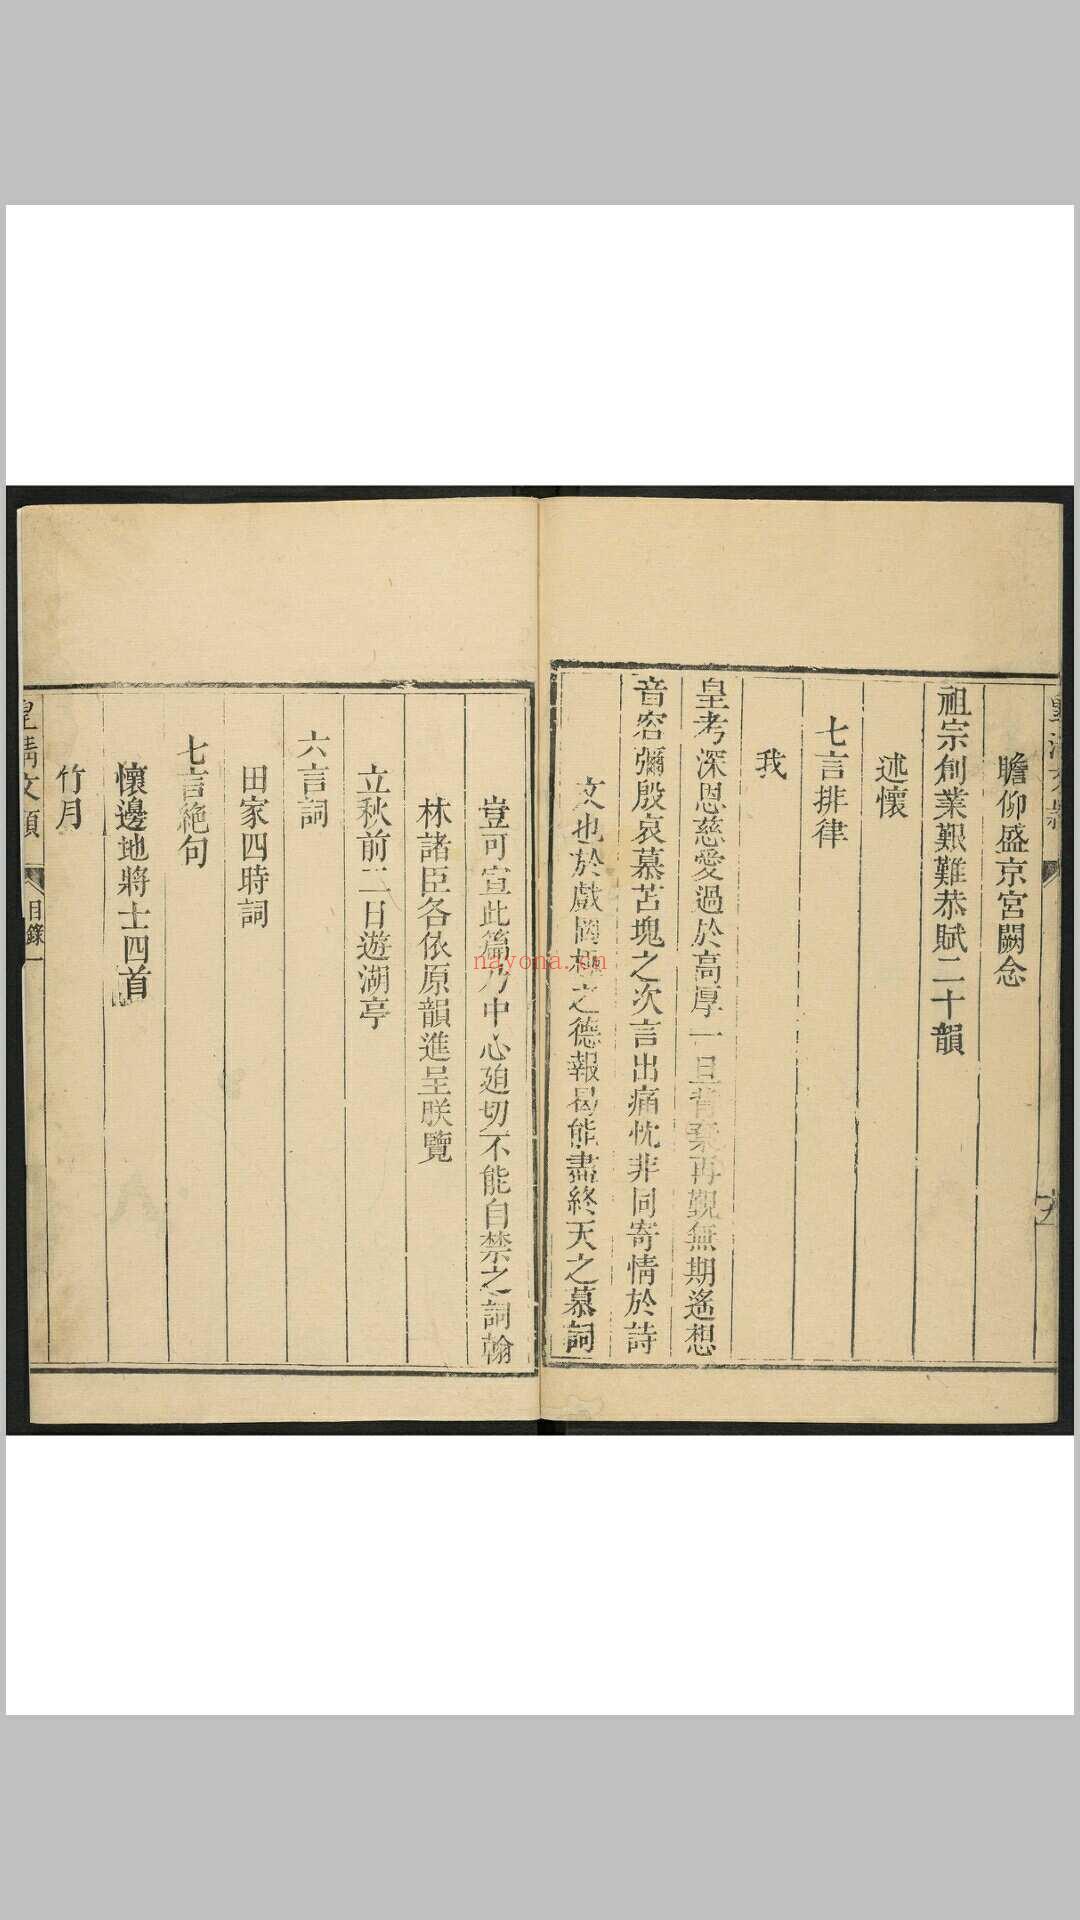 瞻仰盛京宮闕念
祖宗創業艱難恭賦二十韻
述懷
七言排律
我
皇考深恩慈愛過於高厚一旦背棄再覲無期遙想
音容彌殷哀慕苫塊之次言出痛忱非同寄情於詩
文也於戲罔極之德報曷能盡終天之慕詞
豈可宣此篇乃中心廹切不能自禁之詞翰
林諸臣各依原韻進呈朕覽
立秋前二日遊湖亭
六言詞
田家四時詞
七言絕句
懷邊地將士四首
竹月
皇清文穎
目錄一
nayona.cn